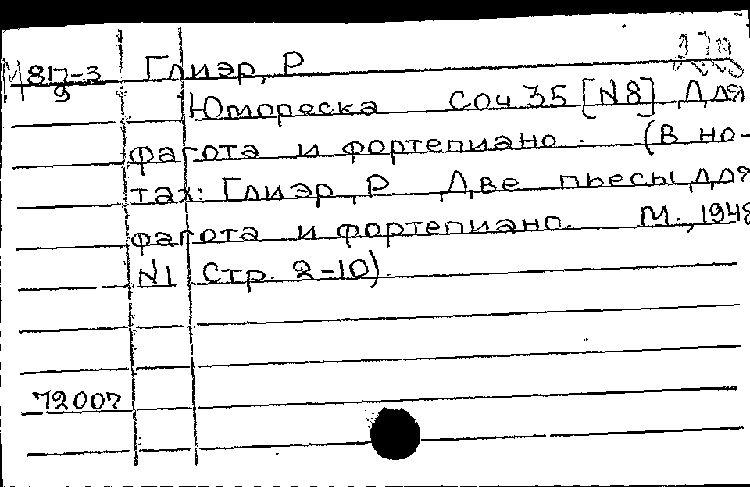 М 817-3 Глиэр, Р
9
Юмореска Соч 35 [N8] Для
фагота и фортепиано. (В но-
тах: Глиэр, Р Две пьесы для
фагота и фортепиано. М., 1948
N1 Стр. 2-10).
72007